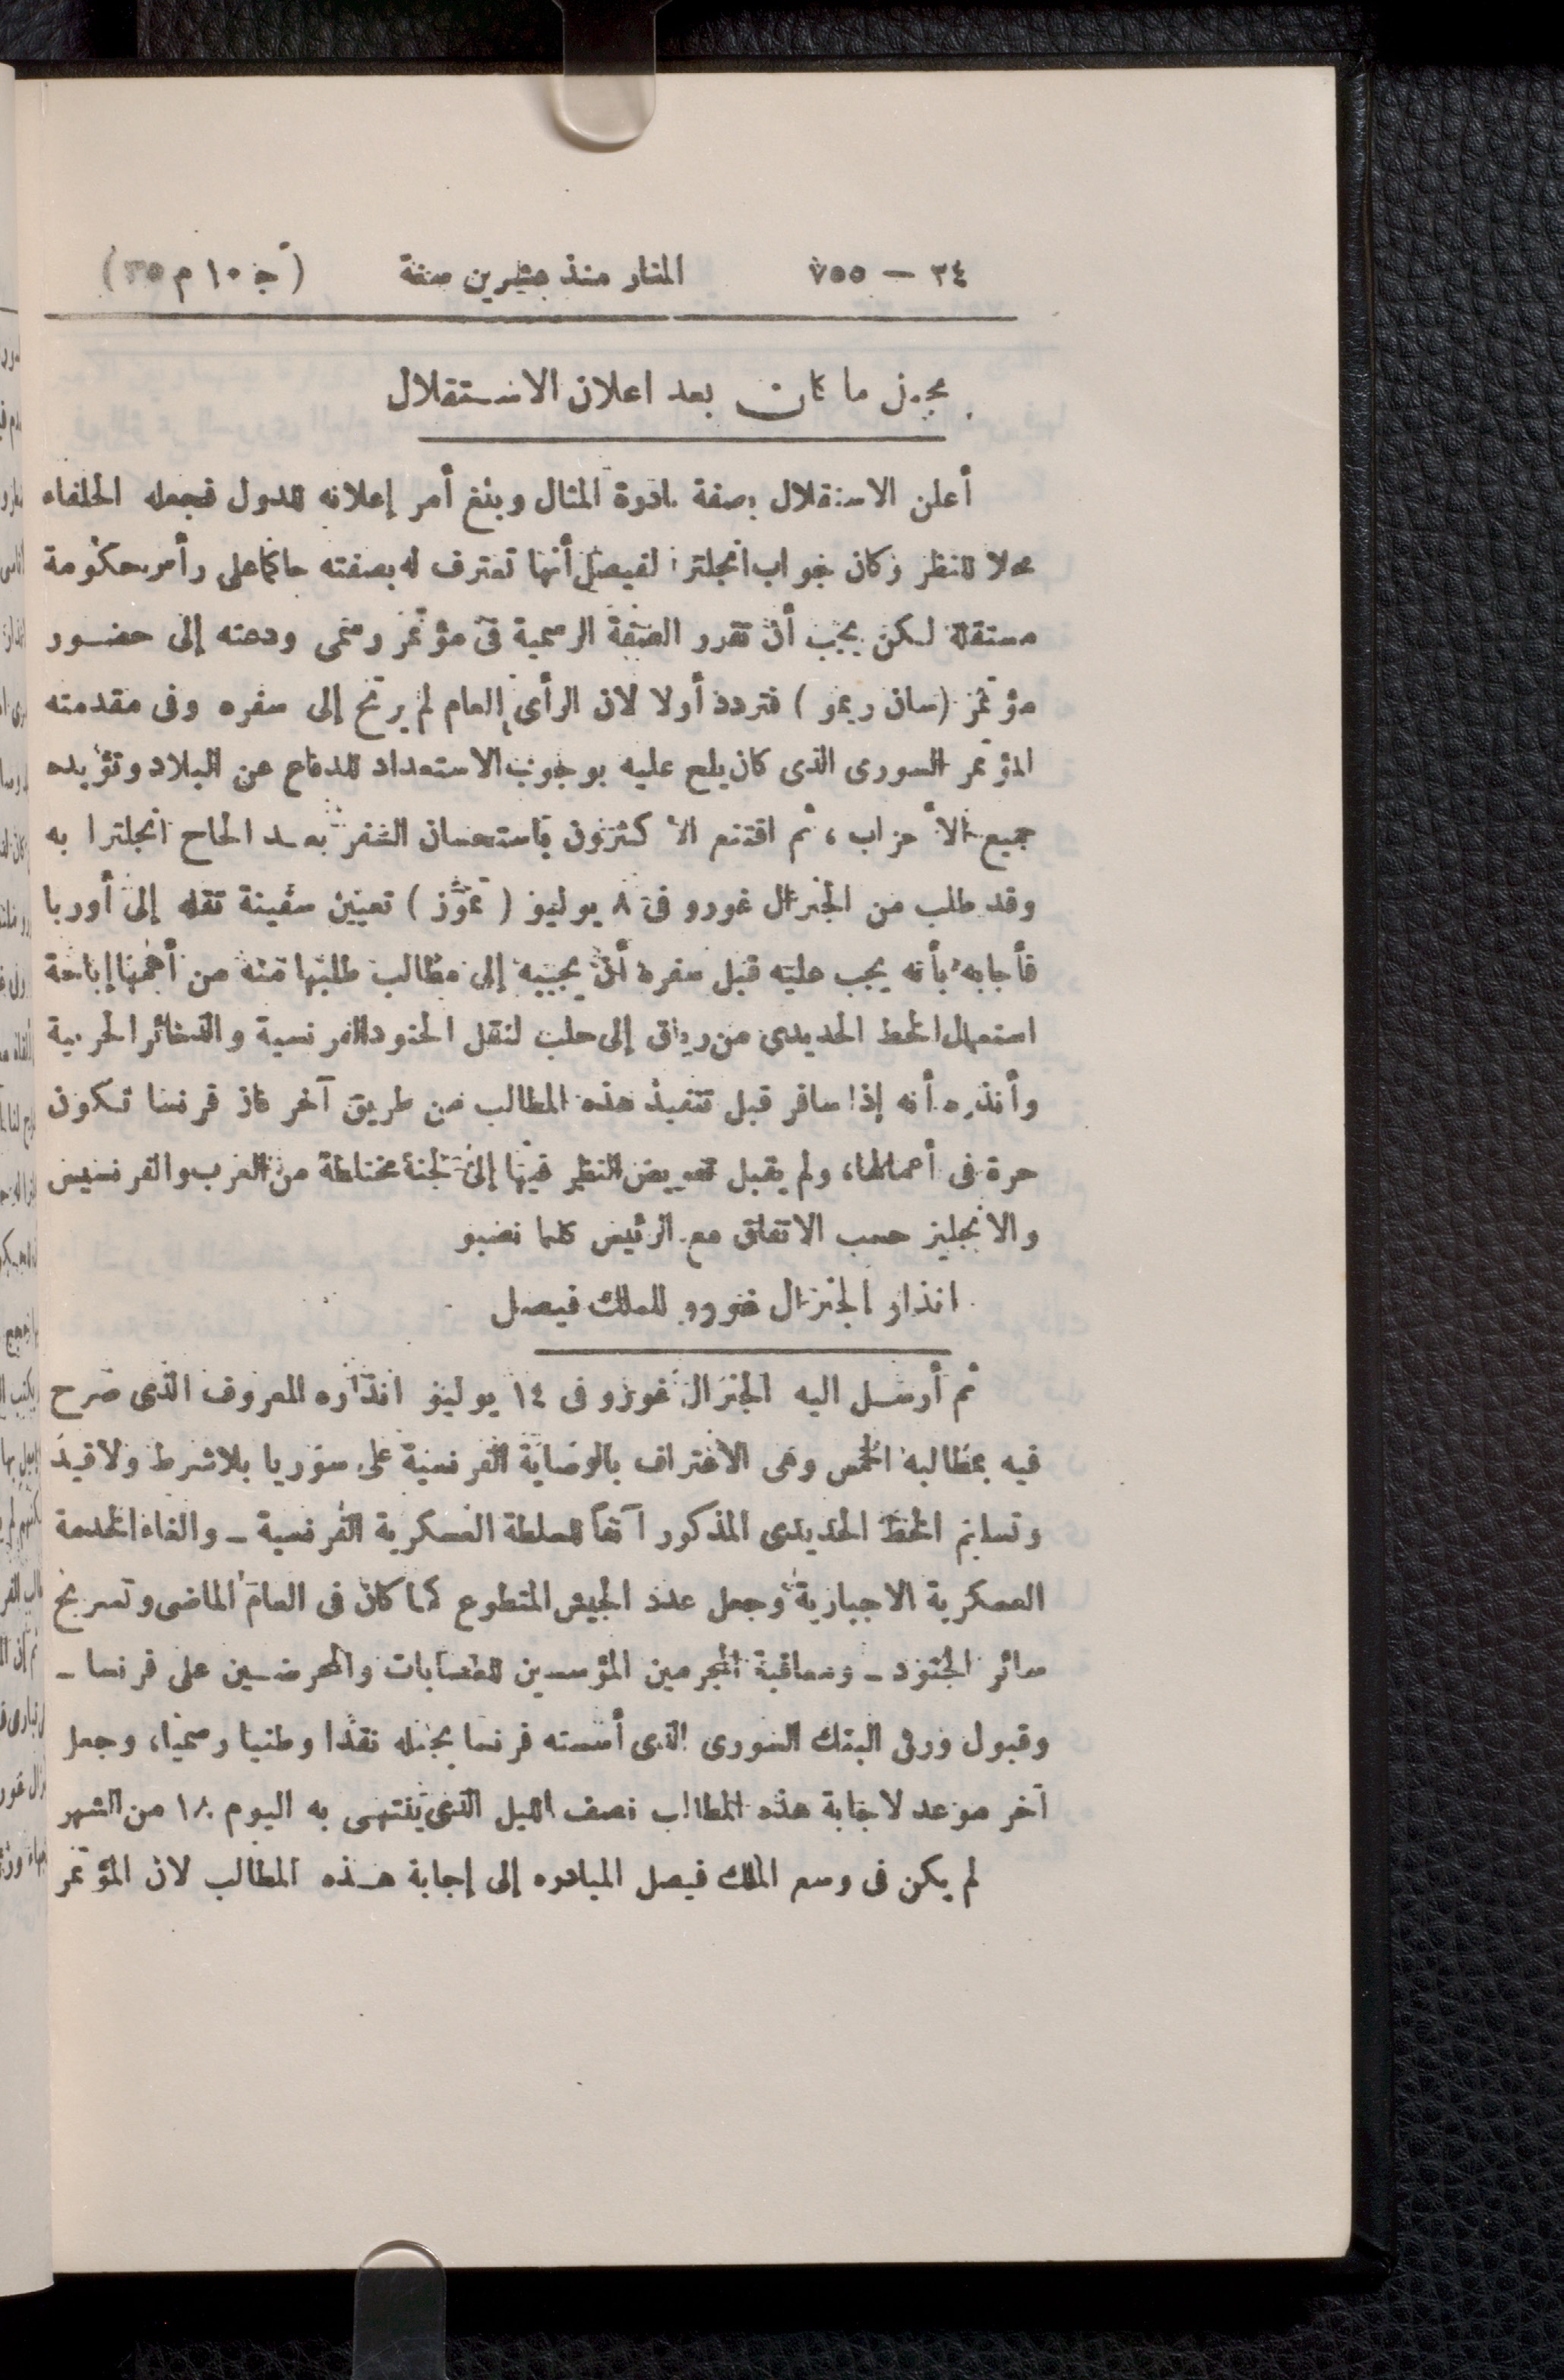 ٣٤ — ٧٥٥ المنار منذ عشرين سنة (ج ١٠ م ٣٥)
مجمل ما كان بعد اعلان الاستقلال
أعلن الاستقلال بصفة نادرة المثال وبلغ أمر إعلانه للدول فجعله الحلفاء
محلا للنظر وكان جواب انجلترا لفيصل أنها تعترف له بصفته حاكما على رأس حكومة
مستقلة لكن يجب أن تقرر الصفة الرسمية فى مؤتمر رسمى ودعته إلى حضور
مؤتمر (سان ريمو) فتردد أولا لان الرأى العام لم يرتح إلى سفره وفى مقدمته
المؤتمر السورى الذى كان يلح عليه بوجوب الاستعداد للدفاع عن البلاد وتؤيده
جميع الأحزاب، ثم اقتنع الأكثرون باستحسان السفر بعد الحاح انجلترا به
وقد طلب من الجنرال غورو فى ٨ يوليو (تموز) تعيين سفينة تقله إلى أوربا
فأجابه بأنه يجب عليه قبل سفره أن يجيبه إلى مطالب طلبها منه من أهمها إباحة
استعمال الخط الحديدى من رياق إلى حلب لنقل الجنود الفرنسية والذخائر الحربية
وأنذره أنه إذا سافر قبل تنفيذ هذه المطالب من طريق آخر فان فرنسا تكون
حرة فى أعمالها، ولم يقبل تفويض النظر فيها إلى لجنة مختلطة من العرب والفرنسيس
والانجليز حسب الاتفاق مع الرئيس كلما نصبو
انذار الجنرال غورو للملك فيصل
ثم أرسل اليه الجنرال غورو فى ١٤ يوليو انذاره المعروف الذى صرح
فيه بمطالبه الخمس وهى الاعتراف بالوصاية الفرنسية على سوريا بلا شرط ولا قيد
وتسليم الخط الحديدى المذكور آنفاً للسلطة العسكرية الفرنسية ـ والغاء الخدمة
العسكرية الاجبارية وجعل عدد الجيش المتطوع كما كان فى العام الماضى وتسريح
سائر الجنود ـ ومعاقبة المجرمين المؤسسين للعصابات والمحرضين على فرنسا ـ
وقبول ورق البنك السورى الذى أسسته فرنسا بجعله نقدا وطنيا رسميا، وجعل
آخر موعد لاجابة هذه المطالب نصف الليل الذى ينتهى به اليوم ١٨ من الشهر
لم يكن فى وسع الملك فيصل المبادره إلى إجابة هذه المطالب لان المؤتمر